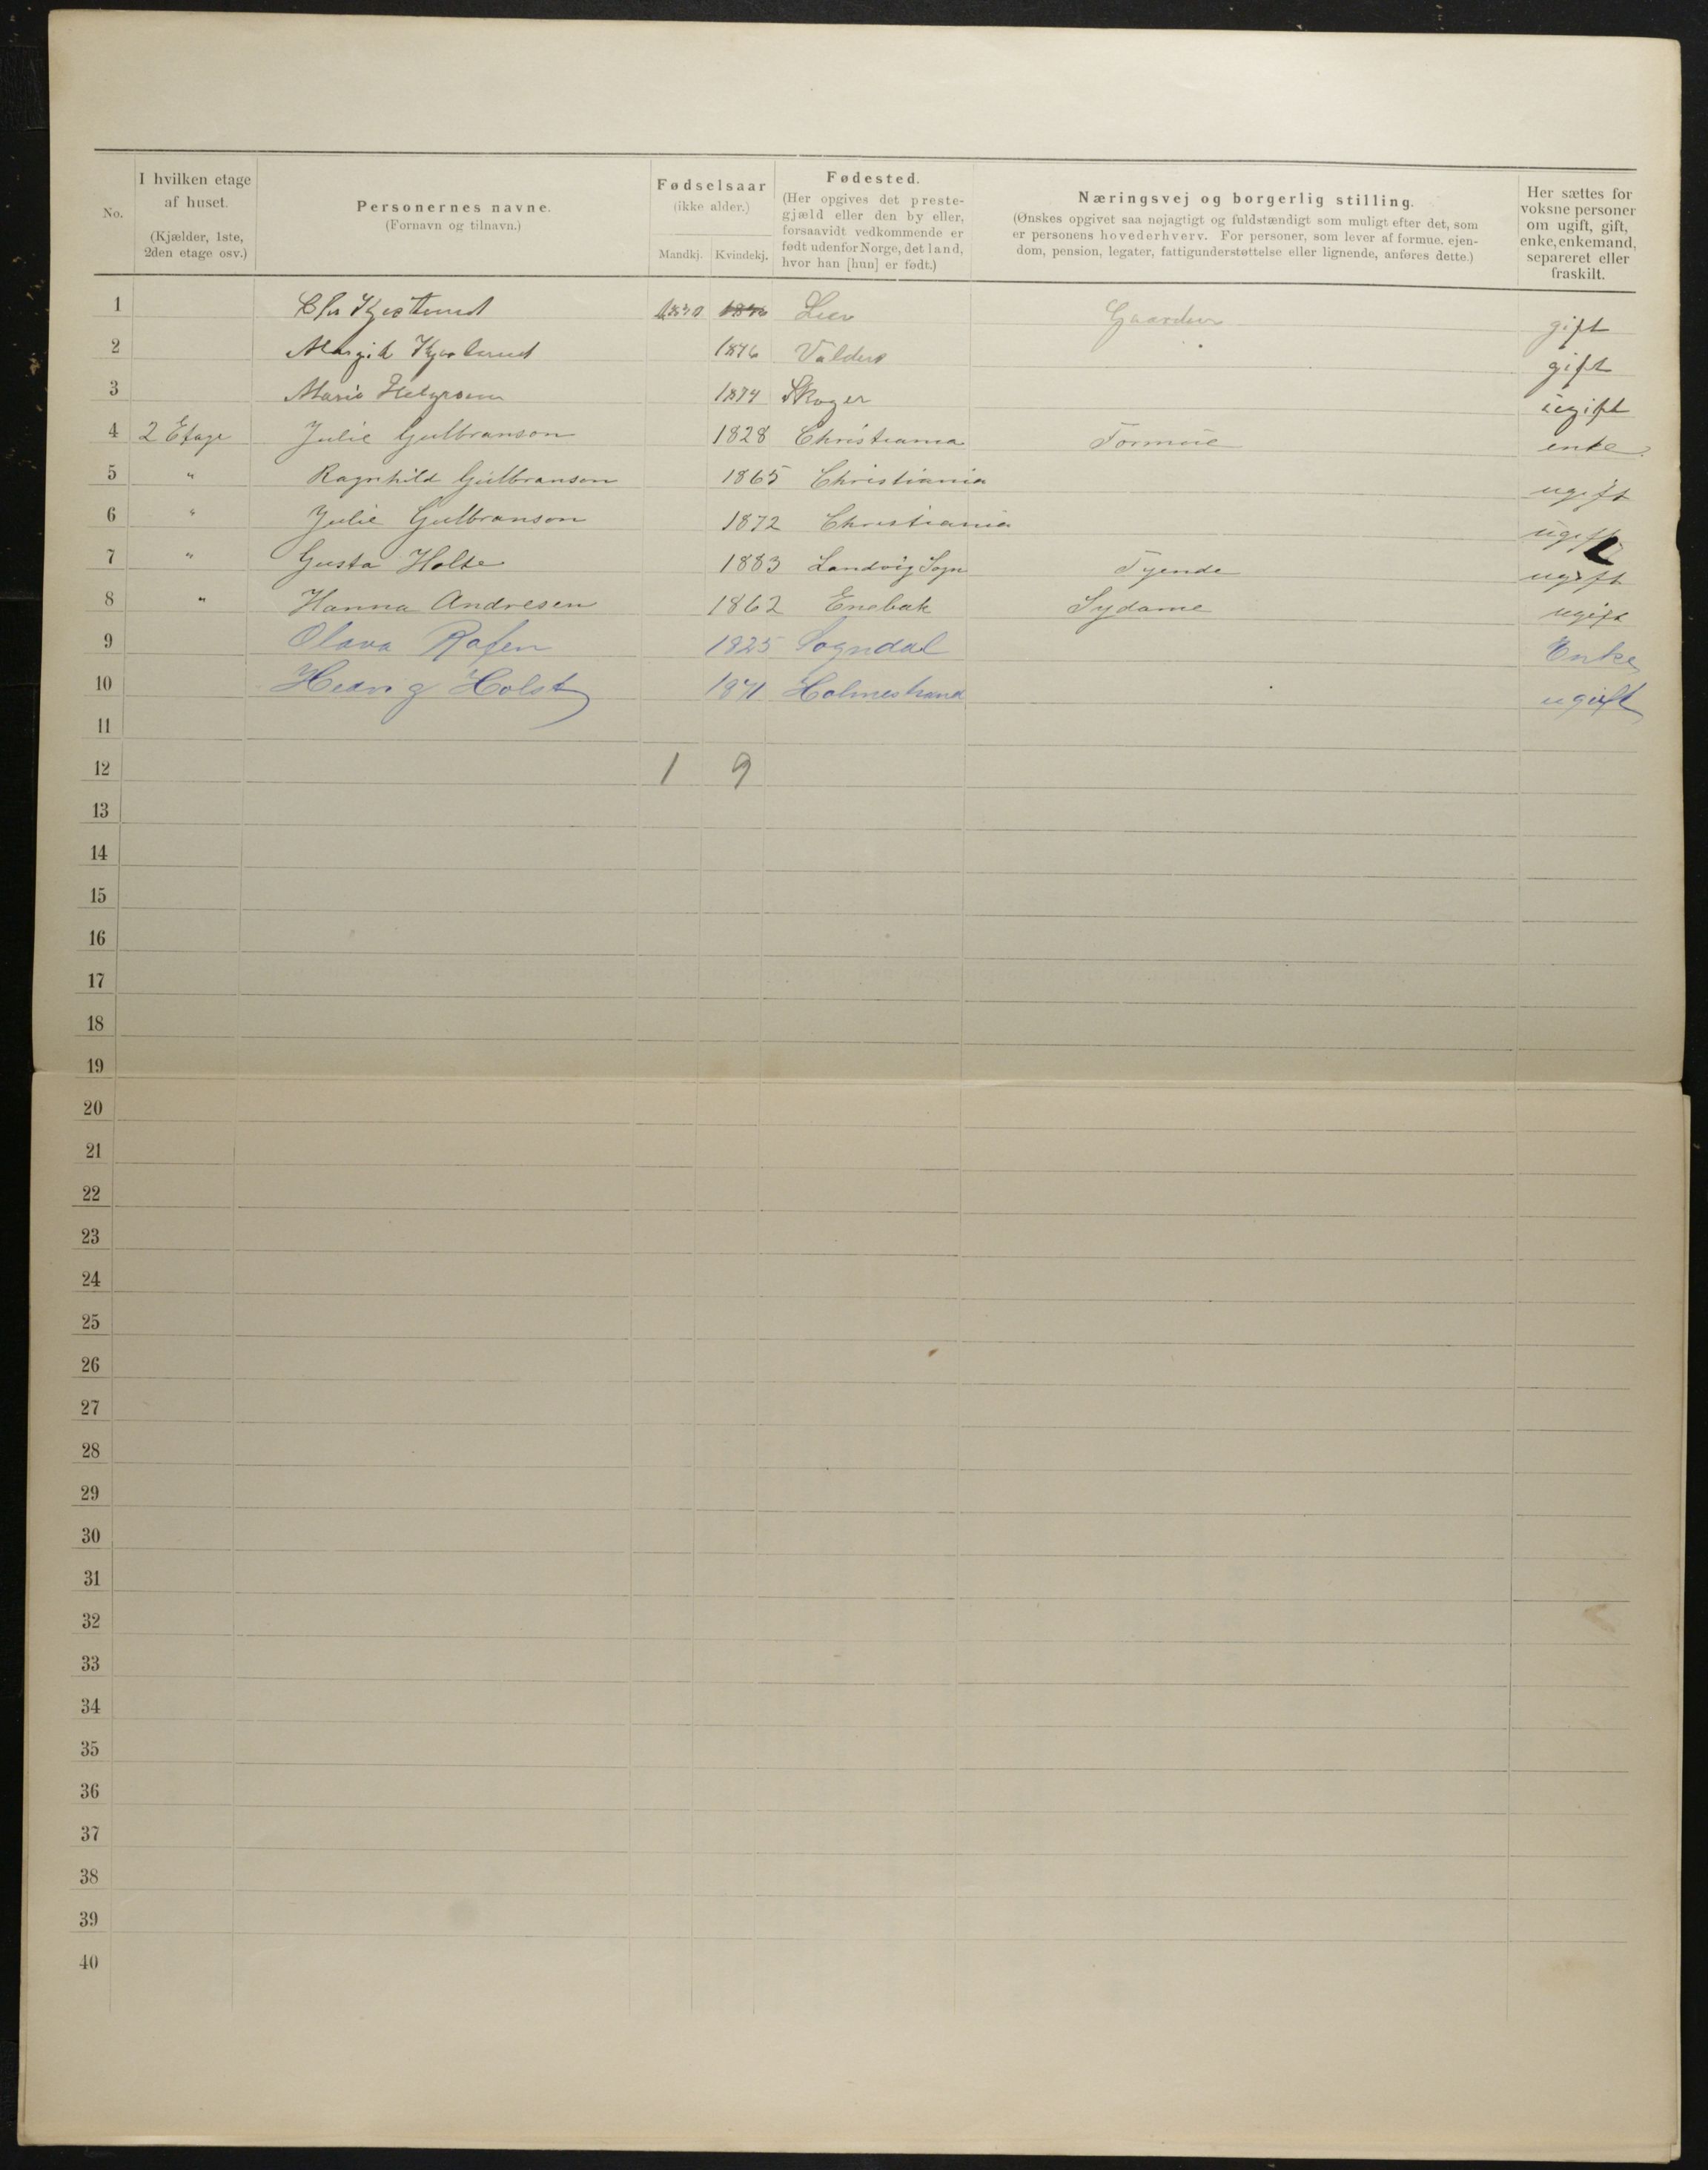 No.
I hvilken etage
af huset.
(Kjælder, 1ste,
2den etage osv.)
Personernes navne.
(Fornavn og tilnavn.)
Fødselsaar
(ikke alder.)
Mandkj. Kvindekj.
Fødested.
(Her opgives det preste-
gjæld eller den by eller,
forsaavidt vedkommende er
født udenfor Norge, det land,
hvor han [hun] er født.)
Næringsvej og borgerlig stilling.
(Ønskes opgivet saa nøjagtigt og fuldstændigt som muligt efter det, som
er personens hovederhverv. For personer, som lever af formue, ejen-
dom, pension, legater, fattigunderstøttelse eller lignende, anføres dette.)
Her sættes for
voksne personer
om ugift, gift,
enke, enkemand,
separeret eller
fraskilt.
1 Chr Lier gift
2 Margit 1876 Valders gift
3 Marie 1874 Skoger ugift
4 2 Etage Julie Gulbranson 1828 Christiania Formue enke
5 " Ragnhild Gulbranson 1865 Christiania ugift
6 " Julie Gulbranson 1872 Christiania ugift
7 " Gusta Holte 1883 Landvig Sogn Tyende ugift
8 " Hanna Andresen 1862 Enebak Sydame ugift
9 Olava 1825 Sogndal Enke
10 Holst 1871 Holmestrand ugift
11
12 1 9
13
14
15
16
17
18
19
20
21
22
23
24
25
26
27
28
29
30
31
32
33
34
35
36
37
38
39
40